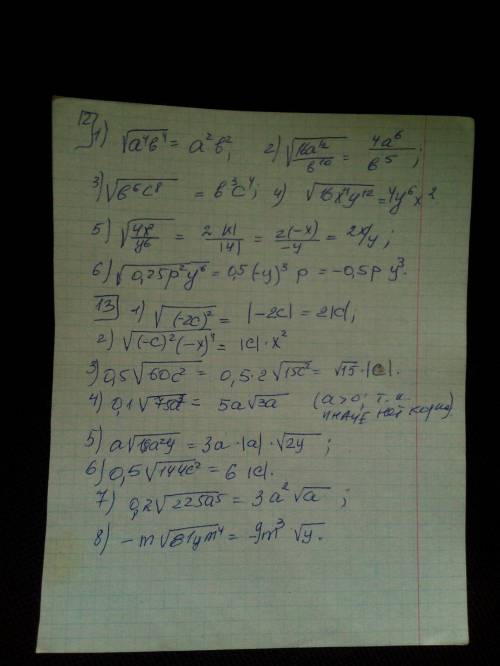 12 1) √a⁴b⁴ = a²b²; 2) √16a¹²/b¹⁰ = 4a⁶/b⁵;
3) √b⁶c⁸ = b³c⁴; 4) √16x⁴y¹² = 4y⁶x²
5) √4x²/y⁶ = 2|x|/|y| = 2(-x)/-y = 2x/y;
6) √0,25p²y⁶ = 0,5(-y)³ p = -0,5p y³.
13 1) √(-2c)² = |-2c| = 2|c|;
2) √(-c)²(-x)⁴ = |c|·x²
3) 0,5√60c² = 0,5·2√15c² = √15·|c|.
4) 0,1√75a³ = 5a√3a (a>0; т.к.
иначе нет корня)
5) a√18a²y = 3a·|a|·√2y;
6) 0,5√144c² = 6|c|.
7) 0,2√225a⁵ = 3a²√a;
8) -m√81ym⁴ = -9m³√y.